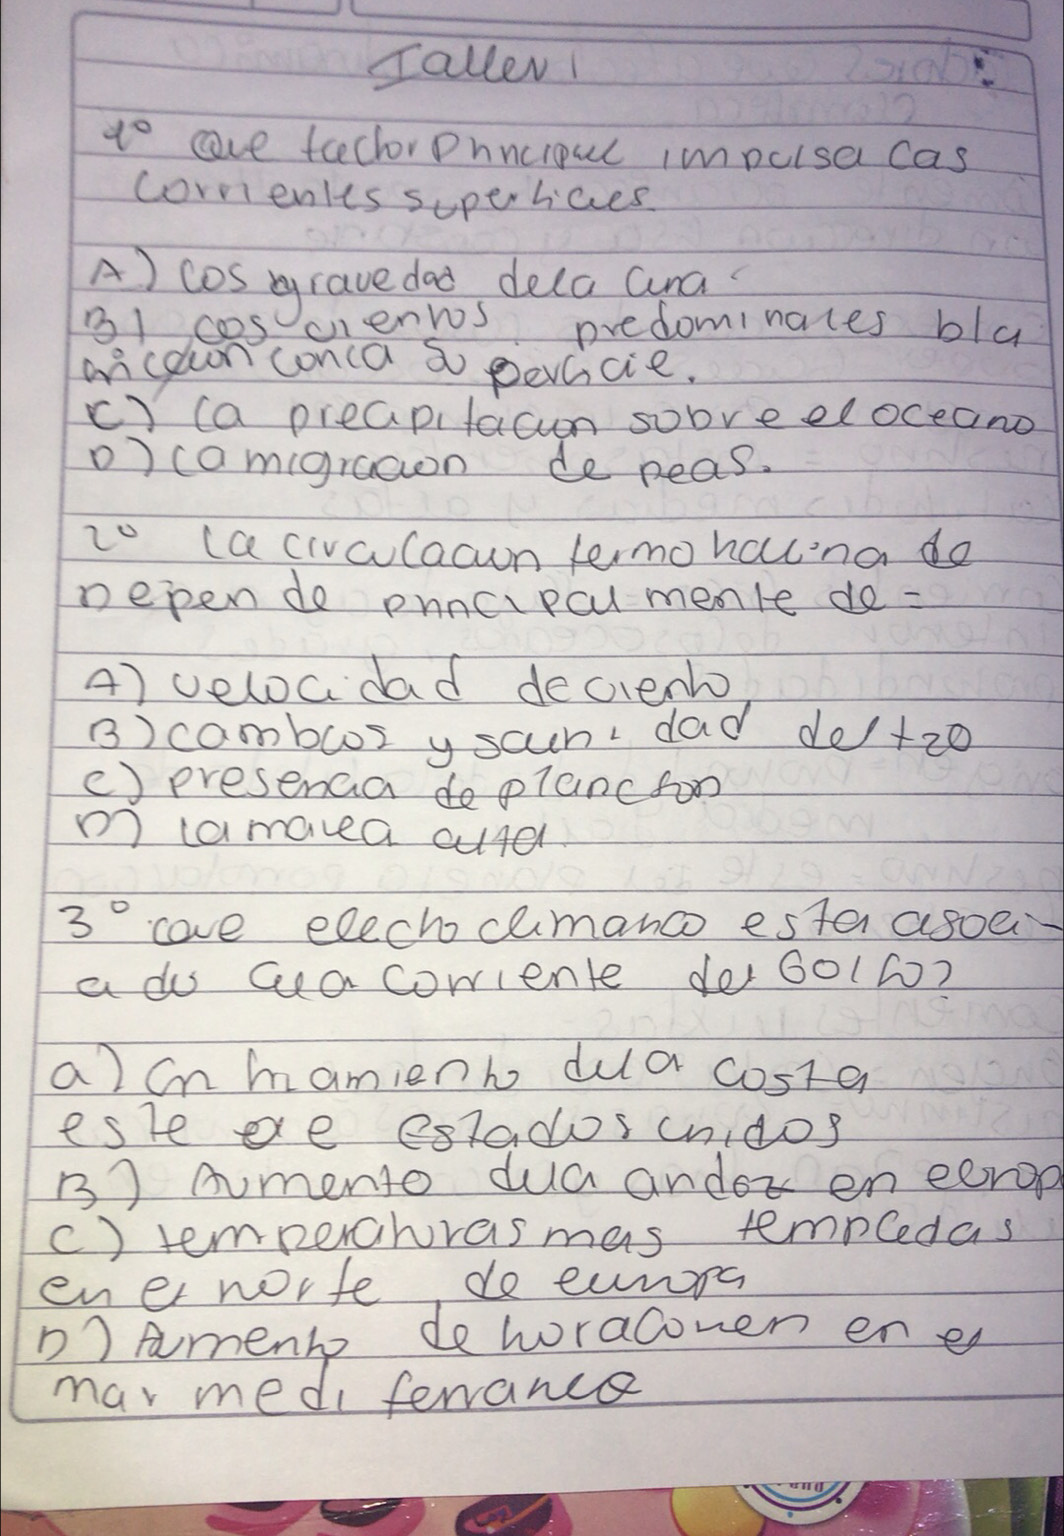 Taller 1
1° Que factor principal impulsa las
corrientes superficiales
A) los gravedad dela luna
B) los vientos predominates b la
con la superficie.
C) la precipitacion sobre el oceano
D) la migracion de peas.
2° la circulacion termohalina de
Depende principalmente de =
A) velocidad de viento
B) cambios y salinidad del H20
C) presencia de plancton
D) la marea alta
3° que efecto climatico esta asoci-
ado a la corriente del Golfo?
a) Enfriamiento dela costa
este de Estados unidos
B) Aumento dela andez en europ
C) temperaturas mas templadas
en el norte de europa
D) Aumento de huracanes en el
mar mediterraneo